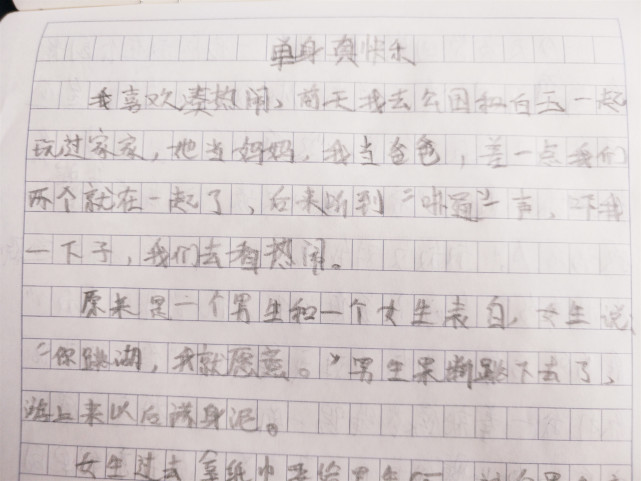 单身真快乐
我喜欢凑热闹、前天我去公园和白玉一起
玩过家家，她当妈妈，我当爸爸，差一点我们
两个就在一起了、后来听到“啪”一声、吓我
一下子，我们去看热闹。
原来是一个男生和一个女生表白，女生说：
“你跳湖，我就愿意。”男生果断跳下去了、
上来以后满身泥。
女生过去拿纸巾